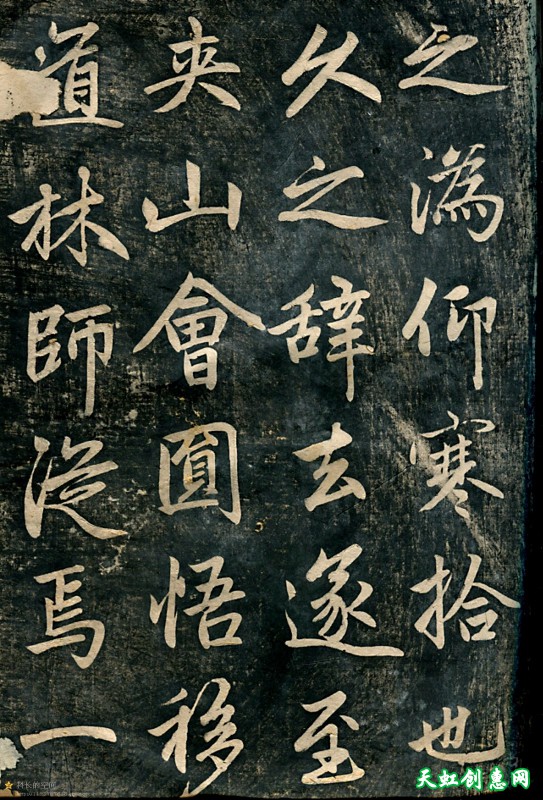 之溈仰寒拾也
久之辞去遂至
夹山會圓悟移
道林師从焉一
天虹创惠网